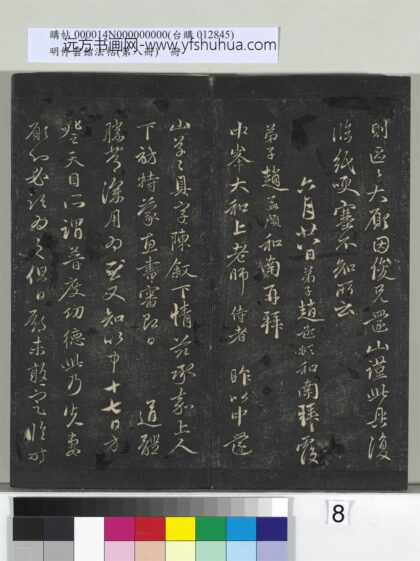 購帖 000014N000000000(台購 012845)
明停雲館法帖(第八冊) 冊
远方书画网-www.yfshuhua.com
則區々大願因俊兄還山謹此具復
臨紙哽塞不知所云
六月廿八日弟子趙孟頫和南拜覆
弟子趙孟頫和南再拜
中峯大和上老師 侍者 昨以中還
山草草具字陳敘下情茲承嘉上人
下訪特蒙直書審即日 道體
勝常深用為慰又知以中十七日方
登天目所謂普度功德此乃先妻
願心
8